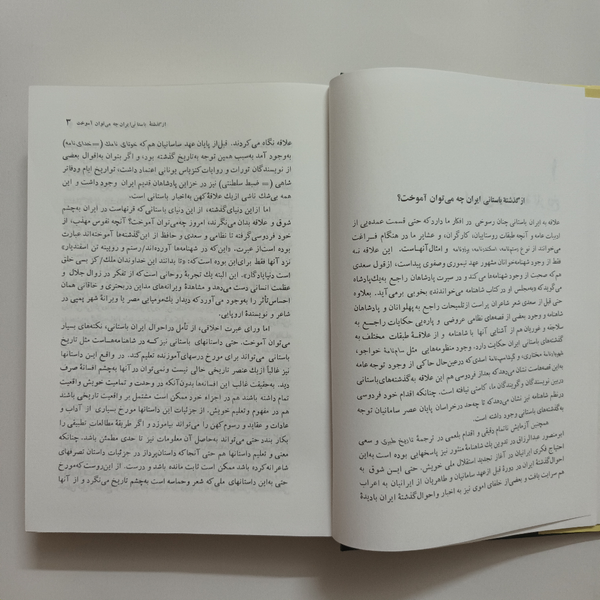 از گذشتهٔ باستانی ایران چه می‌توان آموخت؟
علاقه به ایران باستانی چنان رسوخی در افکار ما دارد که حتی قسمت عمده‌یی از
ادبیات عامه و آنچه طبقات روستاییان، کارگران، و عشایر ما در هنگام فراغت
می‌خوانند از نوع رستم‌نامه، اسکندرنامه، و امثال آنهاست. این علاقه نه
فقط از وجود شهنامه‌خوانان مشهور عهد تیموری و صفوی پیداست، از قول سعدی
هم که صحبت از وجود شهنامه‌ها می‌کند و در سیرت پادشاهان راجع به یک پادشاه
می‌گوید که «مجلس او در کتاب شاهنامه می‌خواندند» بخوبی برمی‌آید. بعلاوه
حتی قبل از سعدی شعر شاعران پراست از تلمیحات راجع به پهلوانان و پادشاهان
شاهنامه و وجود بعضی از قصه‌های نظامی عروضی و پاره‌یی حکایات راجع به
سلاجقه و غوریان هم از آشنایی آنها با شاهنامه و از علاقهٔ طبقات مختلف به
گذشته‌های باستانی ایران حکایت دارد. وجود منظومه‌هایی مثل سام‌نامهٔ خواجو،
شهریارنامهٔ مختاری، و گرشاسپ‌نامهٔ اسدی که در عین‌حال حاکی از وجود توجه عامه
به‌این قصه‌هاست نشان می‌دهد که بعداز فردوسی هم این علاقه به‌گذشته‌های باستانی
دربین نویسندگان و گویندگان ما، کاستی نیافته است. چنانکه اقدام خود فردوسی
در نظم شاهنامه نیز نشان می‌دهد که تا چه‌حد در خراسان پایان عصر سامانیان توجه
به‌گذشته‌های باستانی وجود داشته است.
همچنین آزمایش ناتمام دقیقی و اقدام بلعمی در ترجمهٔ تاریخ طبری و سعی
ابومنصور عبدالرزاق در تدوین یک شاهنامهٔ منثور نیز پاسخهایی بوده است به‌این
احتیاج فکری ایرانیان در آغاز تجدید استقلال ملی خویش. حتی این شوق به
احوال گذشتهٔ ایران در دورهٔ قبل از عهد سامانیان و طاهریان از ایرانیان به اعراب
هم سرایت یافت و بعضی از خلفای اموی نیز به اخبار و احوال گذشتهٔ ایران بادیدهٔ
از گذشتهٔ باستانی ایران چه می‌توان آموخت ۳
علاقه نگاه می‌کردند. قبل‌از پایان عهد ساسانیان هم که خوتای نامک (= خدای نامه)
به‌وجود آمد به‌سبب همین توجه به‌تاریخ گذشته بود، و اگر بتوان به‌اقوال بعضی
از نویسندگان تورات و روایات کتزیاس یونانی اعتماد داشت، تواریخ ایام و دفاتر
شاهی (= ضبط سلطنتی) نیز در خزاین پادشاهان قدیم ایران وجود داشت و این
همه بی‌شک ناشی از یک علاقهٔ کهن به‌اخبار باستانی است.
اما از این دنیای گذشته، از این دنیای باستانی که قرنهاست در ایران به‌چشم
شوق و علاقه بدان می‌نگرند، امروز چه‌می‌توان آموخت؟ آنچه نفوس مهذب، از
خود فردوسی گرفته تا نظامی و سعدی و حافظ از این گذشته‌ها آموخته‌اند عبارت
بوده است از عبرت. «این که در شهنامه‌ها آورده‌اند/رستم و رویینه تن اسفندیار»
نزد آنها فقط برای‌این بوده است که: «تا بدانند این خداوندان ملک/کز بسی خلق
است دنیا یادگار». این البته یک تجربهٔ روحانی است که از تفکر در زوال جلال و
عظمت انسانی دست می‌دهد و مشاهدهٔ ویرانه‌های مداین در بحتری و خاقانی همان
احساس تأثر را به‌وجود می‌آورد که دیدار یک مومیایی مصر یا ویرانهٔ شهر پمپی در
شاعر و نویسندهٔ اروپایی.
اما ورای عبرت اخلاقی، از تأمل در احوال ایران باستانی، نکته‌های بسیار
می‌توان آموخت. حتی داستانهای باستانی نیز که در شاهنامه‌هاست مثل تاریخ
باستانی می‌تواند برای مورخ درسهای آموزنده تعلیم کند. در واقع این داستانها
نیز غالباً از یک عنصر تاریخی خالی نیست و نمی‌توان در آنها به‌چشم افسانهٔ صرف
دید. به‌حقیقت غالب این افسانه‌ها بدون آنکه در وحدت و تمامیت خویش واقعیت
تمام داشته باشند هم در اجزاء خود ممکن است مشتمل بر واقعیت تاریخی باشند
هم در مفهوم و تعلیم خویش. از جزئیات این داستانها مورخ بسیاری از آداب و
عادات و عقاید و رسوم کهن را می‌تواند بیاموزد و اگر طریقهٔ مطالعات تطبیقی را
بکار بندد حتی می‌تواند به‌حاصل آن معلومات نیز تا حدی مطمئن باشد. چنانکه
معنی و تعلیم داستانها هم حتی آنجا که داستان‌پرداز در جزئیات داستان تصرفهای
شاعرانه کرده باشد ممکن است ثابت مانده باشد و درست. از این‌روست که مورخ
حتی به‌این داستانهای ملی که شعر و حماسه است به‌چشم تاریخ می‌نگرد و از آنها